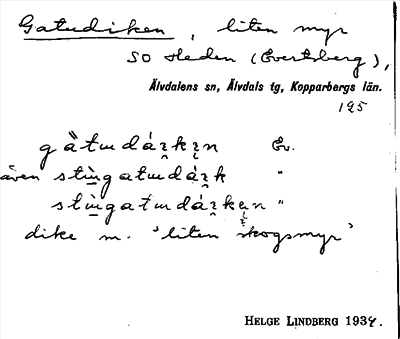 Gatudiken, liten myr
SO Heden (Evertsberg),
Älvdalens sn, Älvdals tg, Kopparbergs län.
195
gàtɯdáɪkɪn Ev.
även stìŋgatɯdáɪk "
stìŋgatɯdáɪkɪn "
dike m. 'liten skogsmyr'
HELGE LINDBERG 1934.